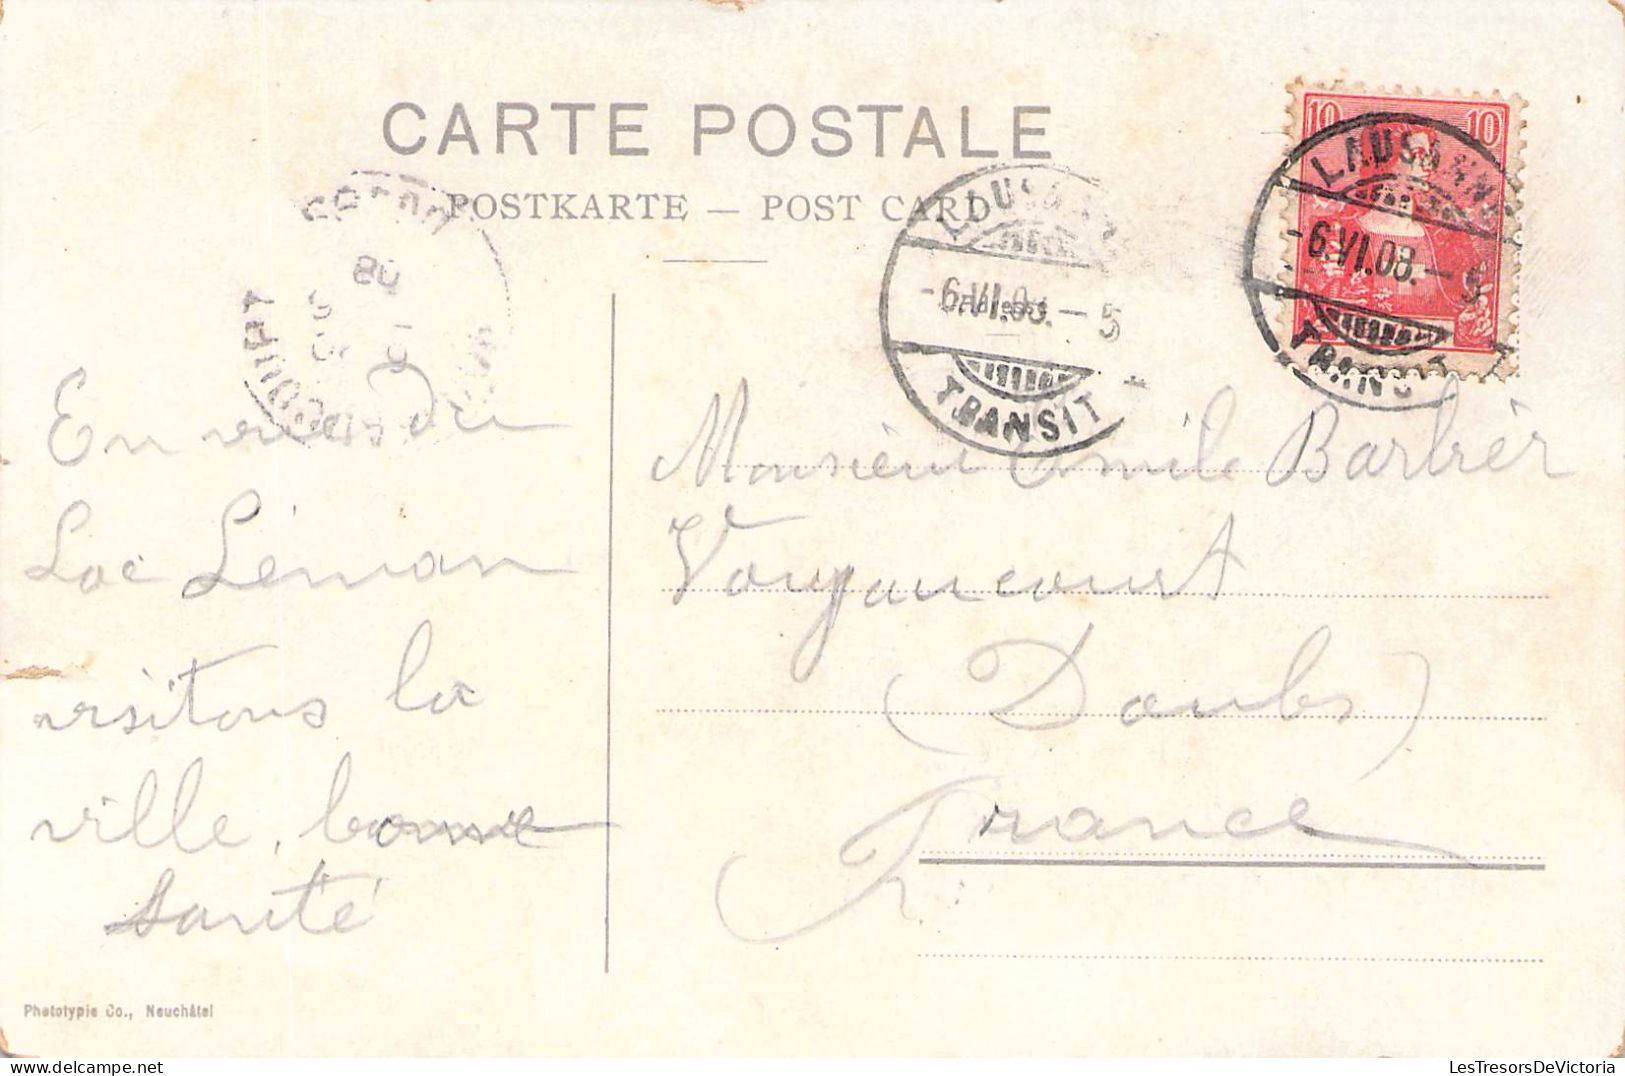 CARTE POSTALE
POSTKARTE — POST CARD
10 10
LAUSANNE
-6.VI.08.-5
TRANSIT
LAUSANNE
-6.VI.08.-5
TRANSIT
08
En vue du
Lac Léman
visitons la
ville, bonne
santé
Monsieur Emile Barbier
Voujaucourt
(Doubs)
France
Phototypie Co., Neuchâtel
LesTresorsDeVictoria